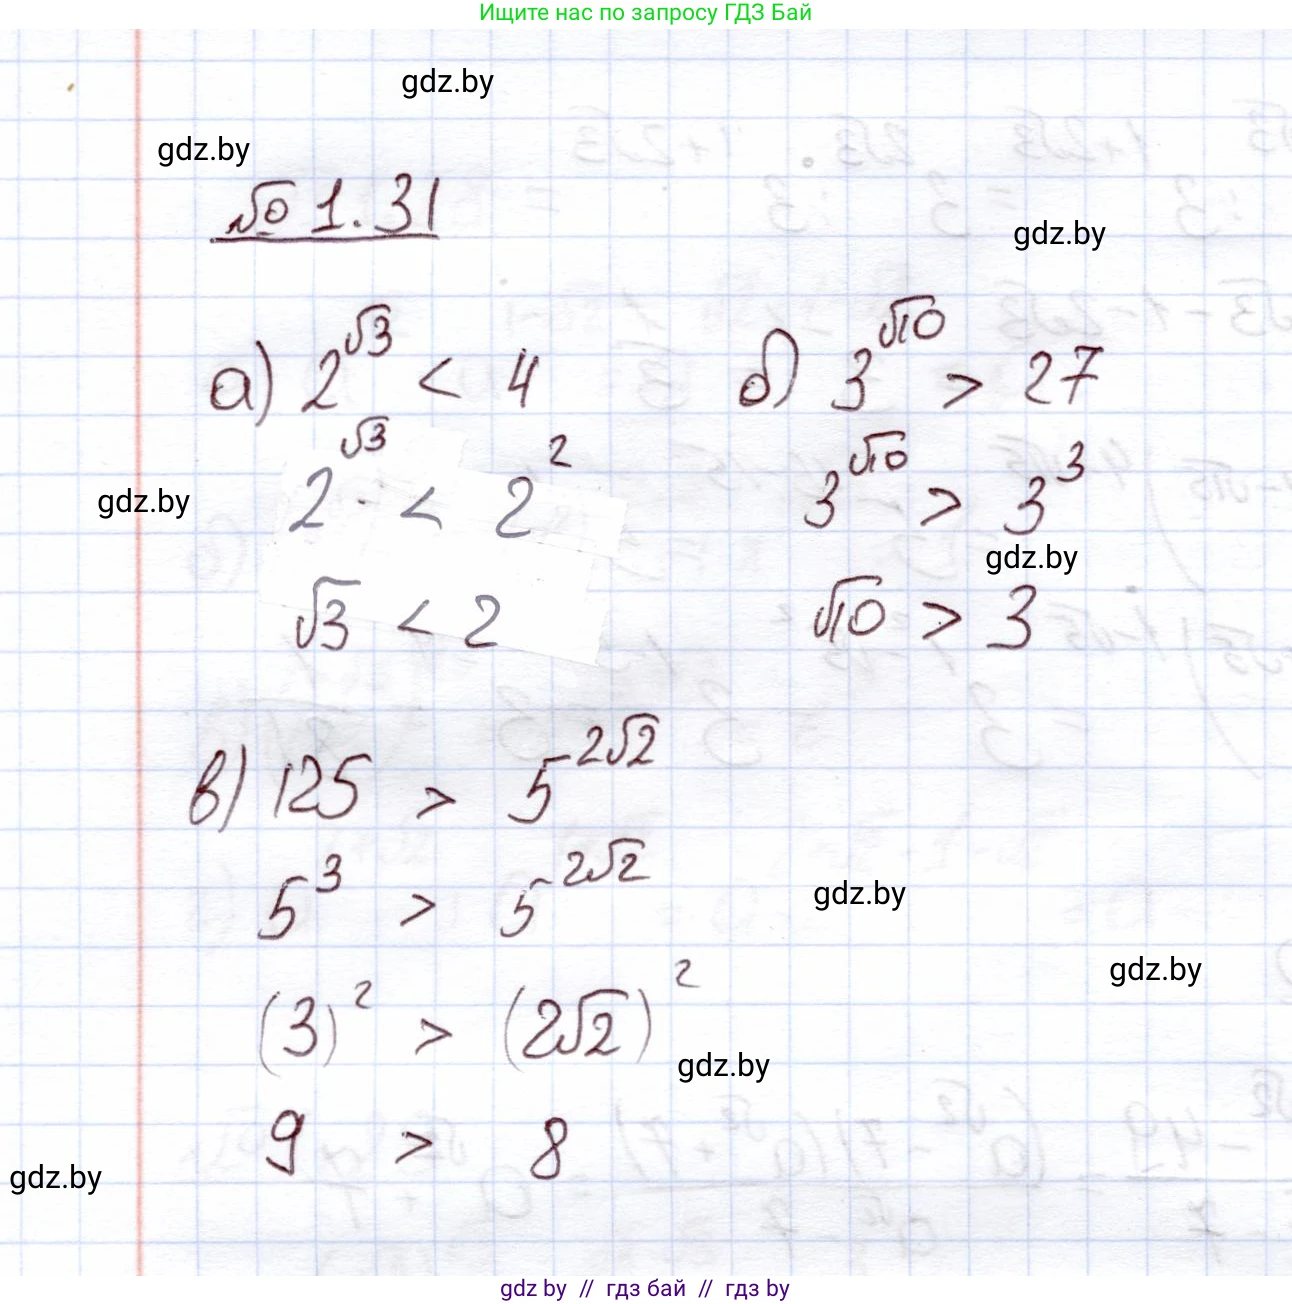 Ищите нас по запросу ГДЗ Бай
gdz.by
gdz.by
№ 1.31
gdz.by
а) 2^√3 < 4
б) 3^√10 > 27
2^√3 < 2^2
3^√10 > 3^3
gdz.by
gdz.by
√3 < 2
√10 > 3
в) 125 > 5^2√2
5^3 > 5^2√2
gdz.by
gdz.by
(3)^2 > (2√2)^2
gdz.by
9 > 8
gdz.by
gdz by // гдз бай // гдз by